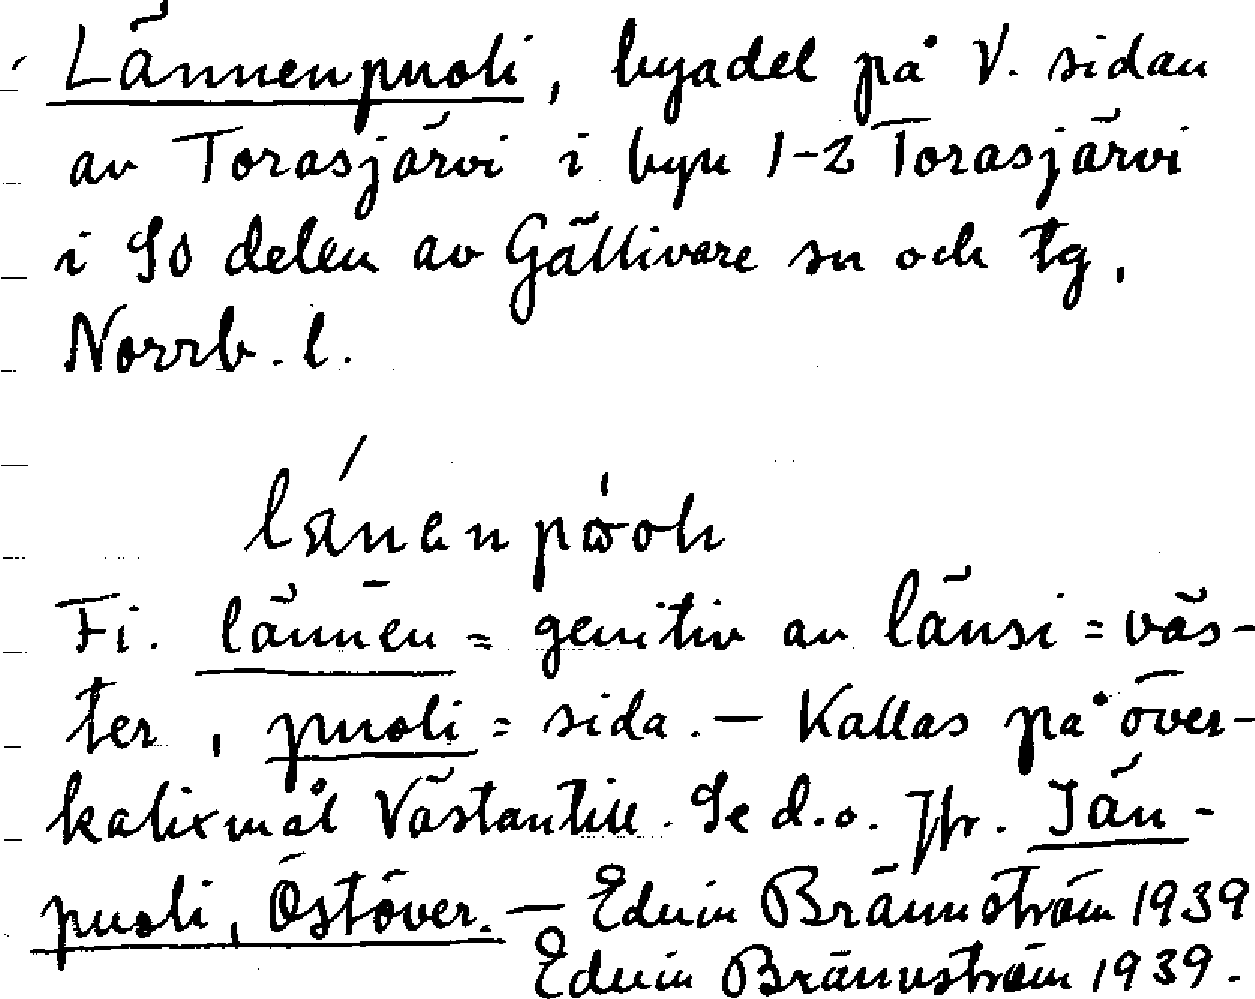 Lännenpuoli, byadel på V. sidan
av Torasjärvi i byn 1-2 Torasjärvi
i SO delen av Gällivare sn och tg,
Norrb. l.
Fi. lännen = genitiv av länsi = väs-
ter, puoli = sida. — Kallas på över-
kalixmål Västantill. Se d.o. Jfr. Itän-
puoli, Östöver. — Edvin Brännström 1939
Edvin Brännström 1939.